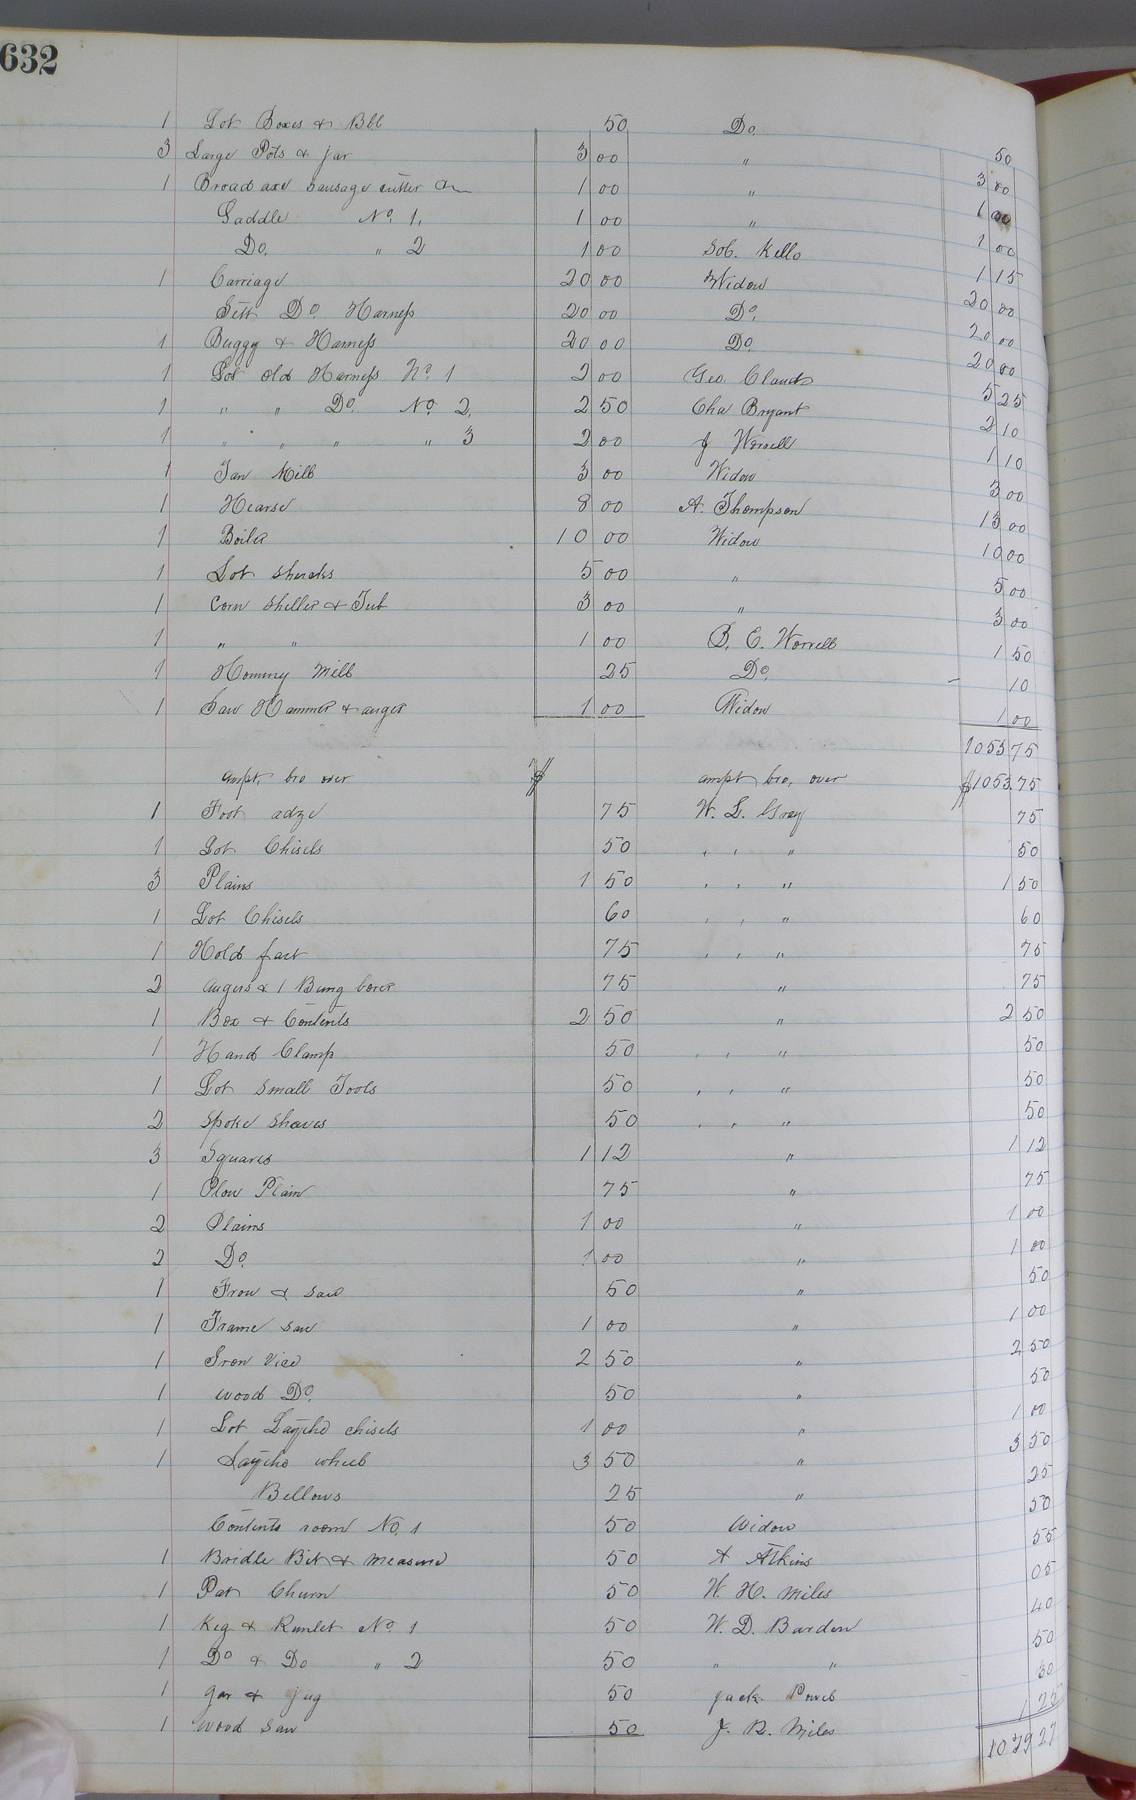 632
1 Lot Boxes & Bbl 50 Do. 50
3 Large Pots & jar 3 00 " 3 00
1 Broad axe Sausage cutter 1 00 " 1 00
Saddle No. 1. 1 00 " 1 00
Do. " 2 1 00 Sol. Kello 1 15
1 Carriage 20 00 Widow 20 00
Sett Do Harness 20 00 Do. 20 00
1 Buggy & Harness 20 00 Do 20 00
1 Lot old Harness No. 1 2 00 Geo. Claud 5 25
1 " " Do. No. 2. 2 50 Cha Bryant 2 10
1 " " " " 3 2 00 J Worrell 1 10
1 Fan Mill 3 00 Widow 3 00
1 Hearse 8 00 A. Thompson 13 00
1 Boiler 10 00 Widow 10 00
1 Lot shucks 5 00 " 5 00
1 Corn Sheller & Tub 3 00 " 3 00
1 " " 1 00 B. E. Worrell 1 50
1 Hominy Mill 25 Do. 10
1 Saw Hammer & auger 1 00 Widow 1 00
1053 75
ampt. bro over $ ampt bro. over $1053.75
1 Foot adze 75 W. L. Gray 75
1 Lot Chisels 50 , , " 50
3 Plains 1 50 , , " 1 50
1 Lot Chisels 60 , , " 60
1 Hold fast 75 , , " 75
2 Augers & 1 Bung borer 75 " 75
1 Box & Contents 2 50 " 2 50
1 Hand Clamp 50 , , " 50
1 Lot Small Tools 50 , , " 50
2 Spoke Shaves 50 , , " 50
3 Squares 1 12 " 1 12
1 Plow Plain 75 " 75
2 Plains 1 00 " 1 00
2 Do. 1 00 " 1 00
1 Frow & Saw 50 " 50
1 Frame Saw 1 00 " 1 00
1 Iron Vice 2 50 " 2 50
1 Wood Do. 50 " 50
1 Lot chisels 1 00 " 1 00
1 wheel 3 50 " 3 50
Bellows 25 " 25
Contents room No. 1 50 Widow 50
1 Bridle Bit & measure 50 A Atkins 55
1 Pat Churn 50 W. H. Miles 05
1 Keg & Runlet No 1 50 W. D. Barden 40
1 Do & Do " 2 50 " " 50
1 Jar & Jug 50 Jack 30
1 Wood Saw 50 J. R. Miles 1 25
1079 27